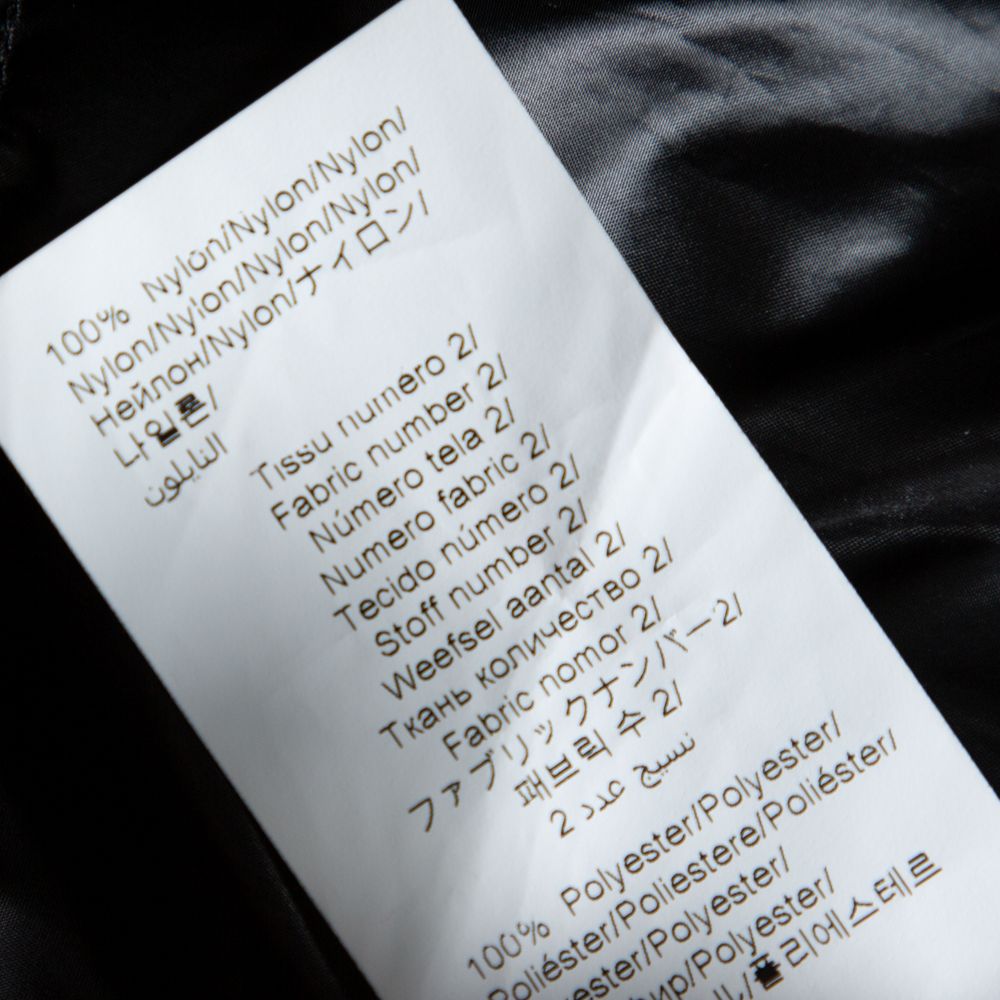 100% Nylon/Nylon/Nylon/
Nylon/Nylon/Nylon/Nylon/
Нейлон/Nylon/ナイロン/
나일론/
النايلون
Tissu numéro 2/
Fabric number 2/
Número tela 2/
Numero fabric 2/
Tecido número 2/
Stoff number 2/
Weefsel aantal 2/
Ткань количество 2/
Fabric nomor 2/
ファブリックナンバー2/
패브릭 수 2/
نسيج عدد 2
100% Polyester/Polyester/
Poliéster/Poliestere/Poliéster/
/Polyester/
/Polyester/
/폴리에스테르